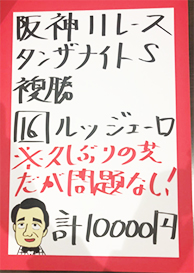 阪神11レース
タンザナイトS
複勝
16 ルッジェーロ
※久しぶりの芝
だが問題ない!
計10000円